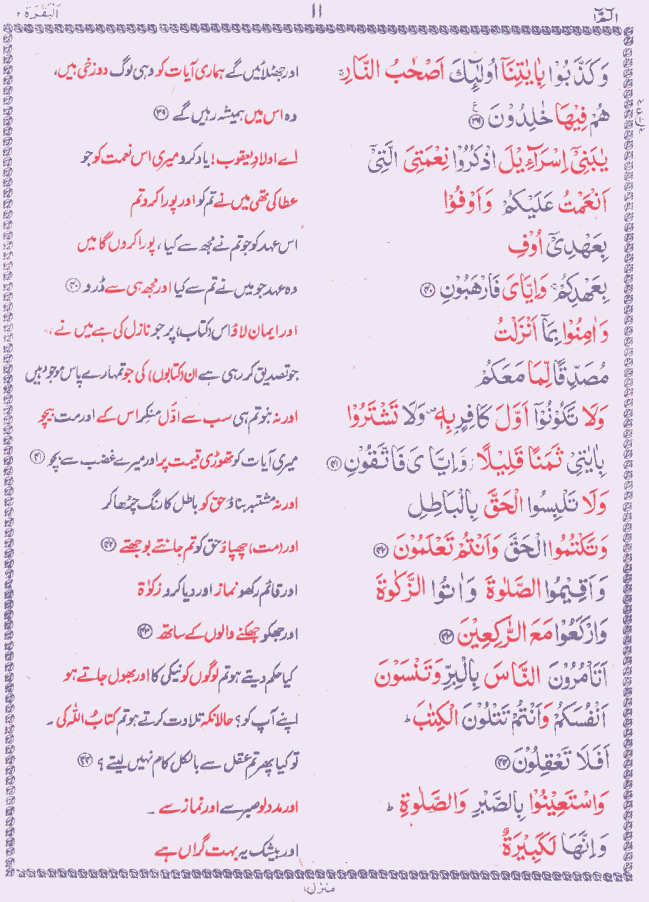 الٓمّٓ ١
۱۱
اَلْبَقَرَة ۲
وَكَذَّبُوْا بِاٰيٰتِنَآ اُولٰٓئِكَ اَصْحٰبُ النَّارِ ۚ
اور جھٹلائیں گے ہماری آیات کو وہی لوگ دوزخی ہیں،
هُمْ فِيْهَا خٰلِدُوْنَ ﴿۳۹﴾
وہ اس میں ہمیشہ رہیں گے ﴿۳۹﴾
يٰبَنِيْٓ اِسْرَآءِيْلَ اذْكُرُوْا نِعْمَتِيَ الَّتِيْٓ
اے اولادِ یعقوب! یاد کرو میری اس نعمت کو جو
اَنْعَمْتُ عَلَيْكُمْ وَاَوْفُوْا
عطا کی تھی میں نے تم کو اور پورا کرو تم
بِعَهْدِيْٓ اُوْفِ
اس عہد کو جو تم نے مجھ سے کیا، پورا کروں گا میں
بِعَهْدِكُمْ ۚ وَاِيَّايَ فَارْهَبُوْنِ ﴿۴۰﴾
وہ عہد جو میں نے تم سے کیا اور مجھ ہی سے ڈرو ﴿۴۰﴾
وَاٰمِنُوْا بِمَآ اَنْزَلْتُ
اور ایمان لاؤ اس (کتاب) پر جو نازل کی ہے میں نے،
مُصَدِّقًا لِّمَا مَعَكُمْ
جو تصدیق کر رہی ہے ان (کتابوں) کی جو تمہارے پاس موجود ہیں
وَلَا تَكُوْنُوْٓا اَوَّلَ كَافِرٍۭ بِهٖ ۪ وَلَا تَشْتَرُوْا
اور نہ بنو تم ہی سب سے اوّل منکر اس کے اور مت بیچو
بِاٰيٰتِيْ ثَمَنًا قَلِيْلًا وَّاِيَّايَ فَاتَّقُوْنِ ﴿۴۱﴾
میری آیات کو تھوڑی قیمت پر اور میرے غضب سے بچو ﴿۴۱﴾
وَلَا تَلْبِسُوا الْحَقَّ بِالْبَاطِلِ
اور نہ مشتبہ بناؤ حق کو باطل کا رنگ چڑھا کر
وَتَكْتُمُوا الْحَقَّ وَاَنْتُمْ تَعْلَمُوْنَ ﴿۴۲﴾
اور (مت) چھپاؤ حق کو تم جانتے بوجھتے ﴿۴۲﴾
وَاَقِيْمُوا الصَّلٰوةَ وَاٰتُوا الزَّكٰوةَ
اور قائم رکھو نماز اور دیا کرو زکوٰۃ
وَارْكَعُوْا مَعَ الرّٰكِعِيْنَ ﴿۴۳﴾
اور جھکو جھکنے والوں کے ساتھ ﴿۴۳﴾
اَتَاْمُرُوْنَ النَّاسَ بِالْبِرِّ وَتَنْسَوْنَ
کیا حکم دیتے ہو تم لوگوں کو نیکی کا اور بھول جاتے ہو
اَنْفُسَكُمْ وَاَنْتُمْ تَتْلُوْنَ الْكِتٰبَ ؕ
اپنے آپ کو؟ حالانکہ تلاوت کرتے ہو تم کتابُ اللہ کی ۔
اَفَلَا تَعْقِلُوْنَ ﴿۴۴﴾
تو کیا پھر تم عقل سے بالکل کام نہیں لیتے؟ ﴿۴۴﴾
وَاسْتَعِيْنُوْا بِالصَّبْرِ وَالصَّلٰوةِ ؕ
اور مدد لو صبر سے اور نماز سے ۔
وَاِنَّهَا لَكَبِيْرَةٌ
اور بیشک یہ بہت گراں ہے
منزل ۱